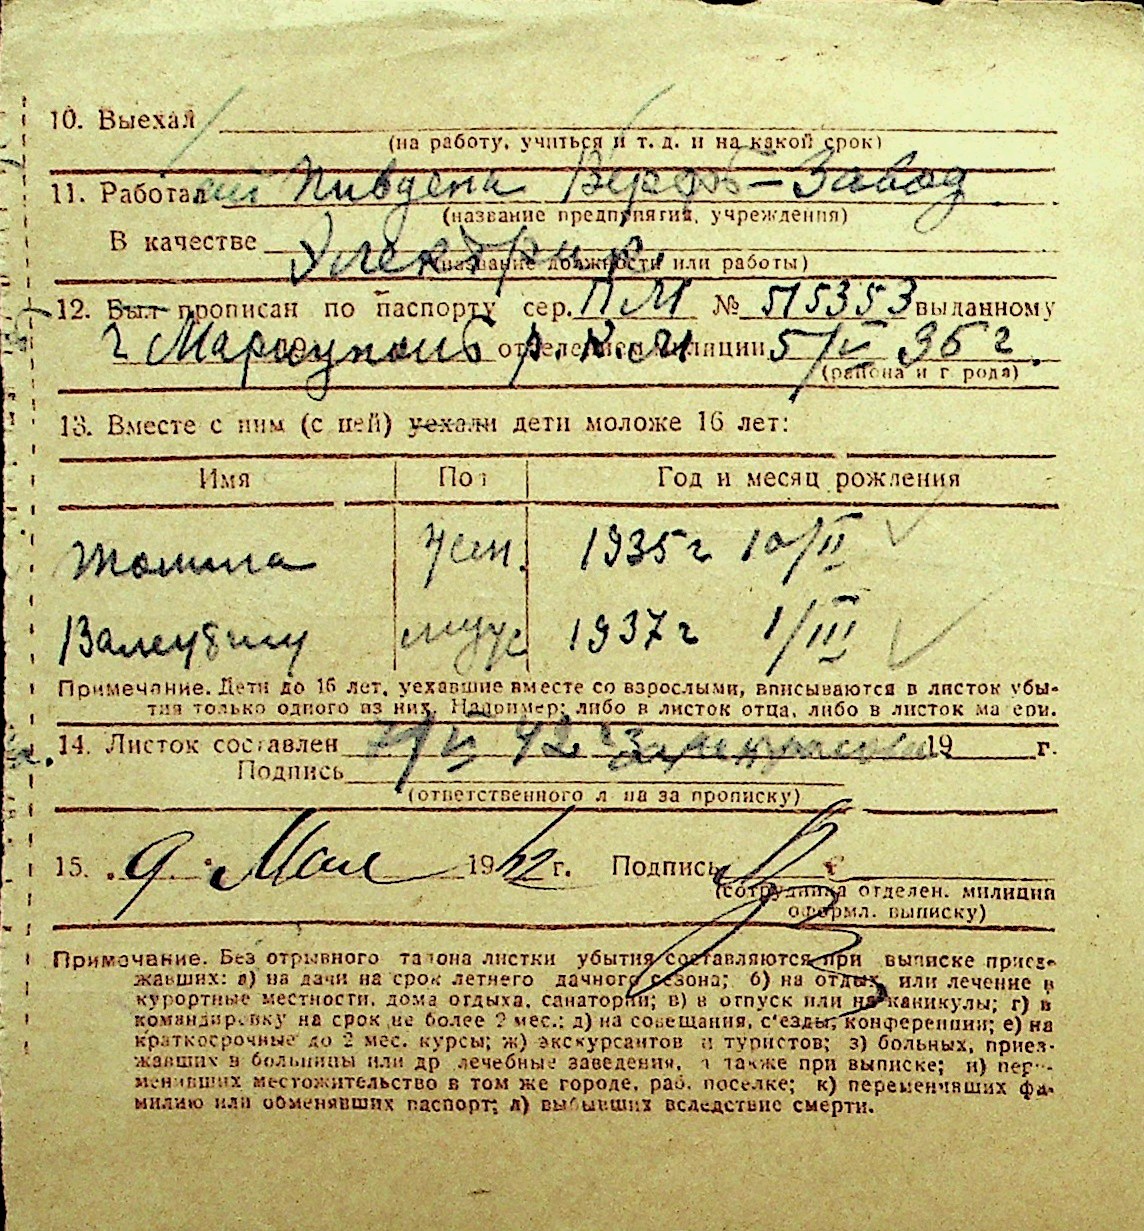 10. Выехал
(на работу, учиться и т. д. и на какой срок)
11. Работал Пивдена Верфь-Завод
(название предприятия, учреждения)
В качестве Електрик.
(название должности или работы)
12. Был прописан по паспорту сер. ПМ № 515353 выданному
г Мариуполь отделением милиции р. К. М 5/II 36 г.
(района и г рода)
13. Вместе с ним (с ней) уехали дети моложе 16 лет:
Имя Пол Год и месяц рождения
жен. 1935 г 10/II
Валентин муж 1937 г 1/III
Примечание. Дети до 16 лет, уехавшие вместе со взрослыми, вписываются в листок убы-
тия только одного из них. Например: либо в листок отца, либо в листок матери.
14. Листок составлен 42 г 19 г.
Подпись
(ответственного лица за прописку)
15. 9 Мая 1942 г. Подпись
(сотрудника отделен. милиции
оформл. выписку)
Примечание. Без отрывного талона листки убытия составляются при выписке приез-
жавших: а) на дачи на срок летнего дачного сезона; б) на отдых или лечение в
курортные местности, дома отдыха, санатории; в) в отпуск или на каникулы; г) в
командировку на срок не более 2 мес.; д) на совещания, с'езды, конференции; е) на
краткосрочные до 2 мес. курсы; ж) экскурсантов и туристов; з) больных, приез-
жавших в больницы или др лечебные заведения, а также при выписке; и) пере-
менивших местожительство в том же городе, раб. поселке; к) переменивших фа-
милию или обменявших паспорт; л) выбывших вследствие смерти.